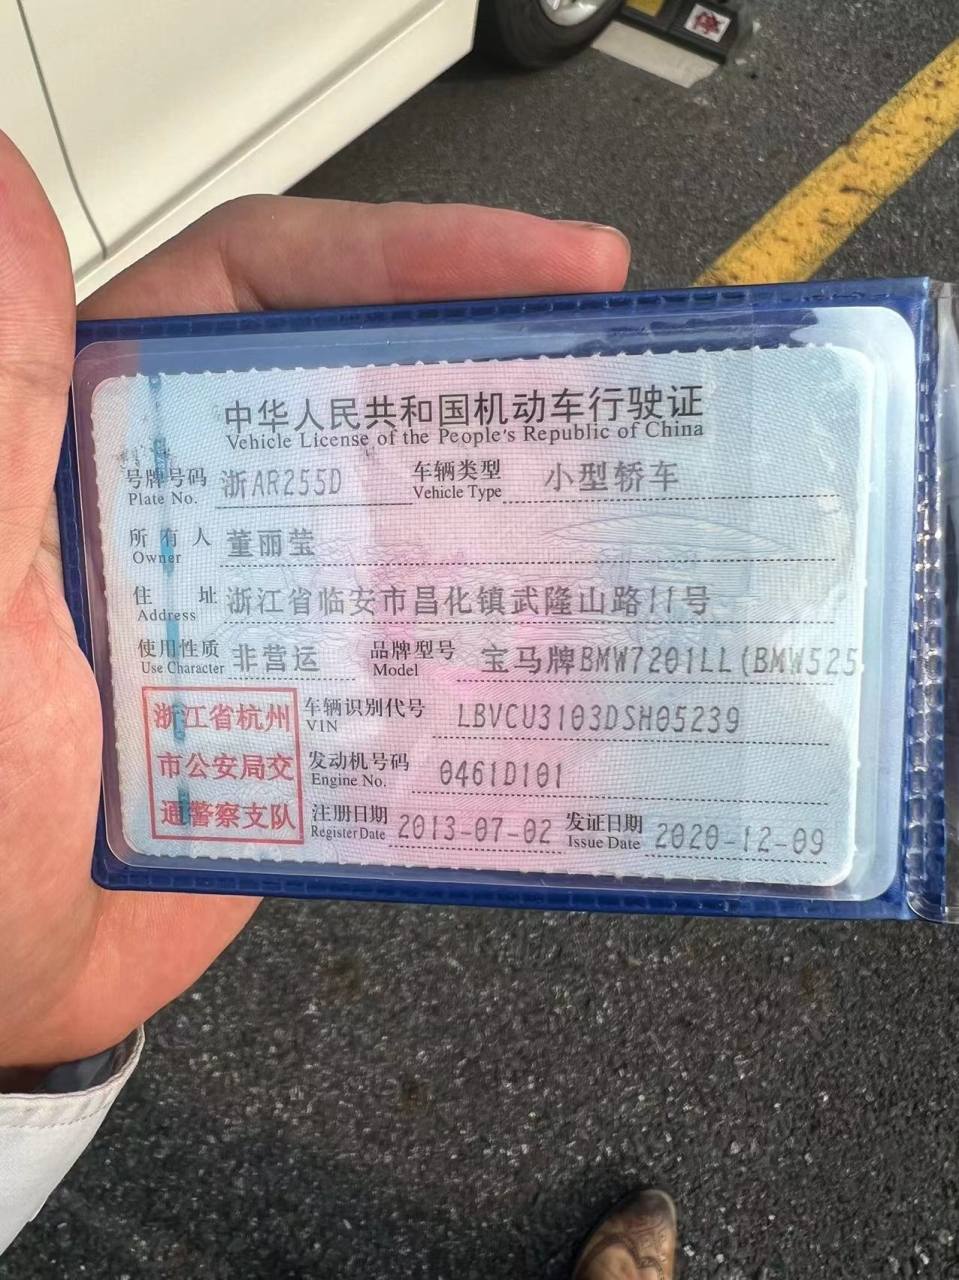 中华人民共和国机动车行驶证
Vehicle License of the People's Republic of China
号牌号码 浙AR255D 车辆类型 小型轿车
Plate No. Vehicle Type
所有人 董丽莹
Owner
住址 浙江省临安市昌化镇武隆山路11号
Address
使用性质 非营运 品牌型号 宝马牌BMW7201LL(BMW525
Use Character Model
浙江省杭州
市公安局交
通警察支队
车辆识别代号 LBVCU3103DSH05239
VIN
发动机号码 0461D101
Engine No.
注册日期 2013-07-02 发证日期 2020-12-09
Register Date Issue Date